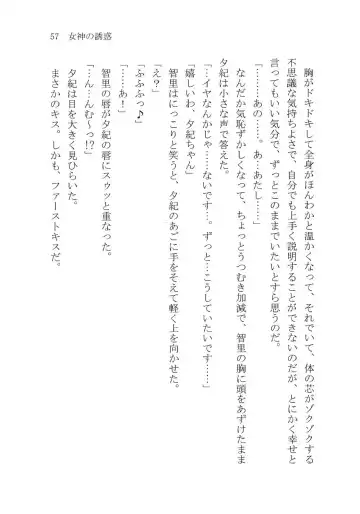 57　女神の誘惑
胸がドキドキして全身がほんわかと温かくなって、それでいて、体の芯がゾクゾクする
不思議な気持ちよさで、自分でも上手く説明することができないのだが、とにかく幸せと
言ってもいい気分で、ずっとこのままでいたいとすら思うのだ。
「………あの……。あ…あたし……」
なんだか気恥ずかしくなって、ちょっとうつむき加減で、智里の胸に頭をあずけたまま
夕紀は小さな声で答えた。
「…イヤなんかじゃ……ないです…。ずっと…こうしていたいです……」
「嬉しいわ、夕紀ちゃん」
智里はにっこりと笑うと、夕紀のあごに手をそえて軽く上を向かせた。
「え？」
「ふふふっ♪」
「……あ！」
智里の唇が夕紀の唇にスウッと重なった。
「…ん……んむ～っ!?」
夕紀は目を大きく見ひらいた。
まさかのキス。しかも、ファーストキスだ。